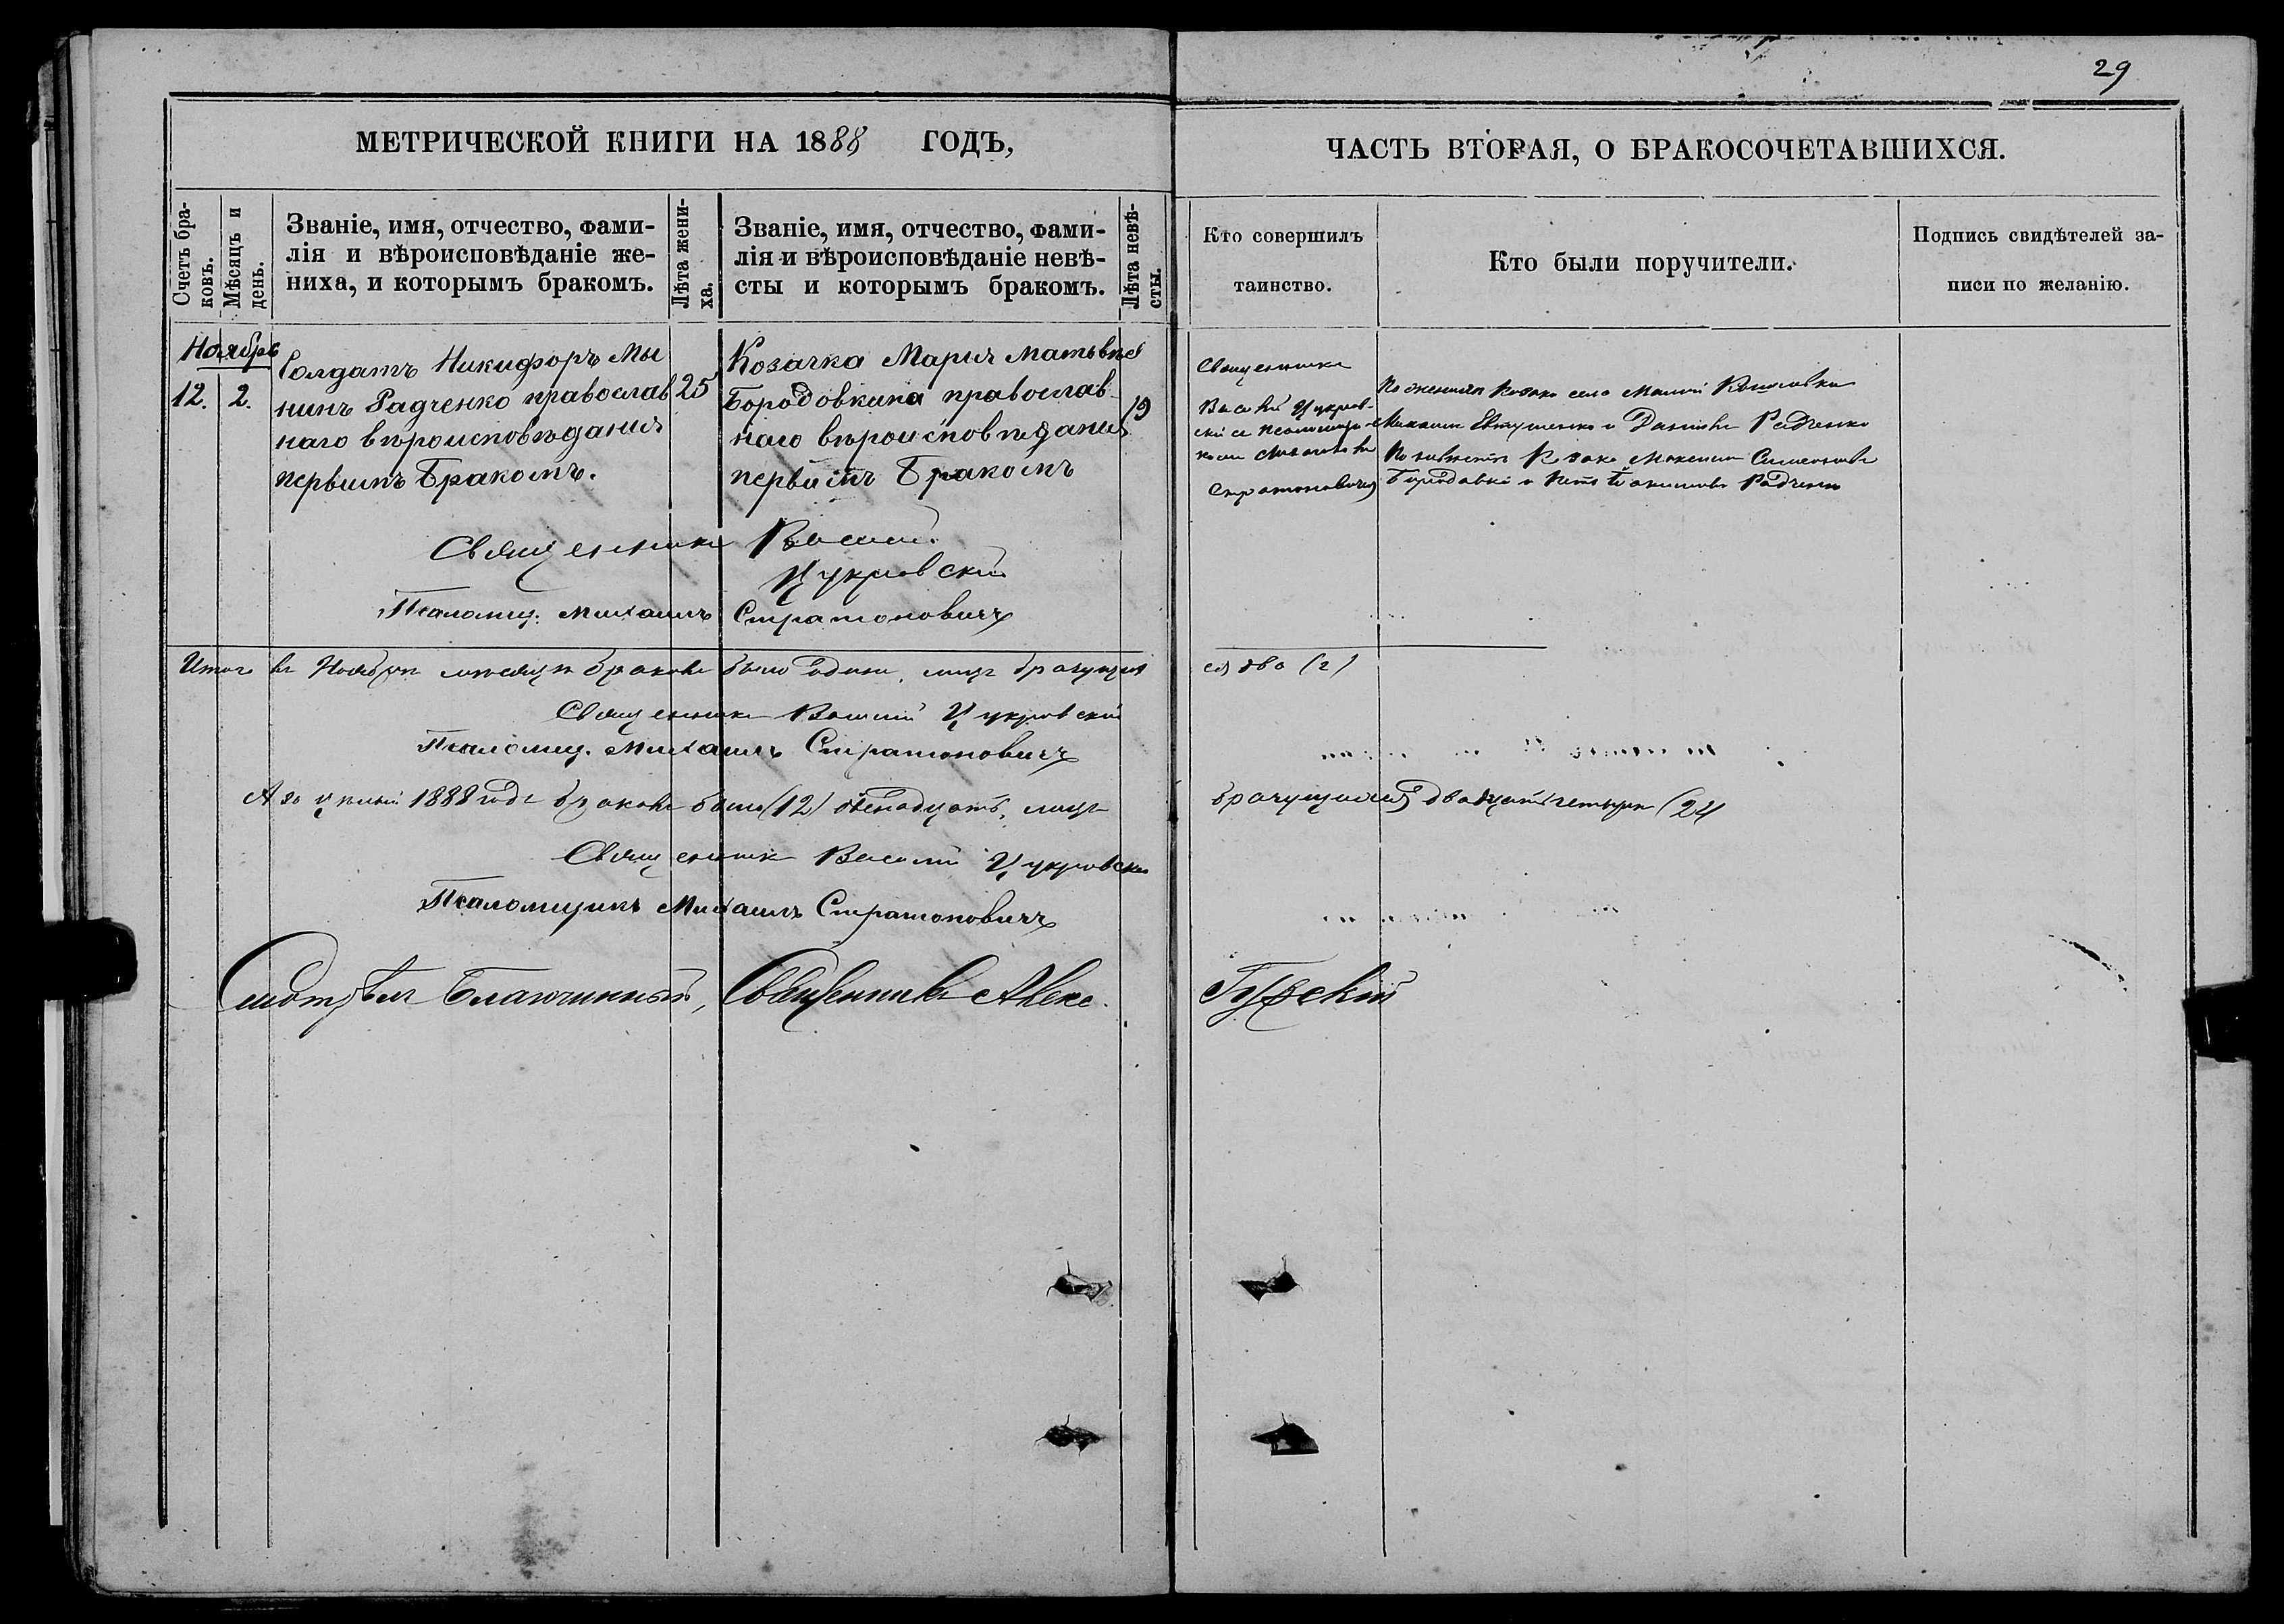 29
МЕТРИЧЕСКОЙ КНИГИ НА 1888 ГОДЪ,
Счетъ бра-
ковъ.
Мѣсяцъ и
день.
Званіе, имя, отчество, фами-
лія и вѣроисповѣданіе же-
ниха, и которымъ бракомъ.
Лѣта жени-
ха.
Званіе, имя, отчество, фами-
лія и вѣроисповѣданіе невѣ-
сты и которымъ бракомъ.
Лѣта невѣ-
сты.
ЧАСТЬ ВТОРАЯ, О БРАКОСОЧЕТАВШИХСЯ.
Кто совершилъ
таинство.
Кто были поручители.
Подпись свидѣтелей за-
писи по желанію.
Ноябрь
12. 2.
Солдатъ Никифоръ Мы
нинъ Радченко православ
наго вѣроисповѣданія
первымъ Бракомъ.
25
Козачка Марія Матвѣев
Бородовкина православ
наго вѣроисповѣданія
первымъ Бракомъ
19
Священникъ
Василій Цукров-
скій съ псаломщи-
комъ
Стратоновичемъ
По женихѣ Козаки села Малой
Евтушенко и Радченко
По невѣстѣ Козаки Симеоновъ
Бородавка и Радченко
Священникъ Василій
Цукровскій
Псаломщ. Михаилъ Стратоновичъ
Итого въ Ноябрѣ мѣсяцѣ браковъ было одинъ, лицъ брачущих
ся два (2)
Священникъ Василій Цукровскій
Псаломщ. Михаилъ Стратоновичъ
А за цѣлый 1888 годъ браковъ было (12) двенадцать, лицъ
брачущихся двадцать четыре (24
Священникъ Василій Цукровскій
Псаломщикъ Михаилъ Стратоновичъ
Смотрѣлъ Благочинный, Священникъ Алекс.